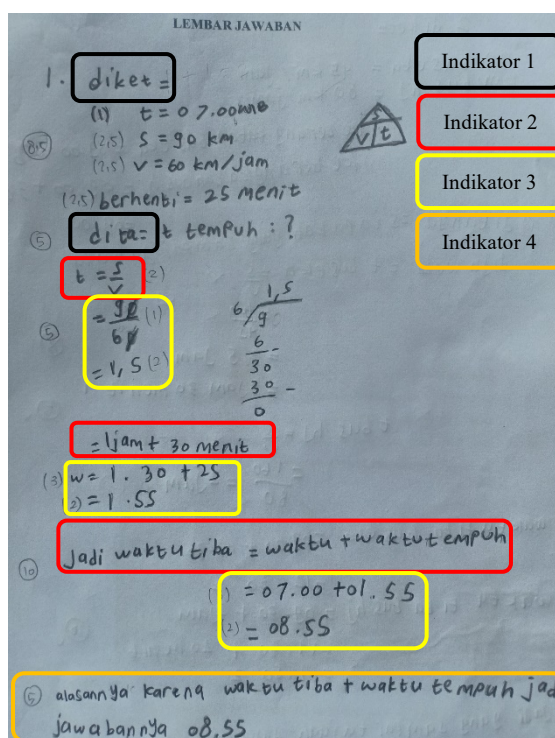 LEMBAR JAWABAN
Indikator 1
Indikator 2
Indikator 3
Indikator 4
1. diket =
(1) t = 07.00 WIB
8,5 (2,5) S = 90 km
(2,5) V = 60 km/jam
(2,5) berhenti = 25 menit
S
V t
5 dita = t tempuh : ?
t = S/V (2)
5 = 90/60 (1)
= 1,5 (2)
1,5
6 9
6 -
30
30 -
0
= 1 jam + 30 menit
(3) w = 1.30 + 25
2) = 1.55
Jadi waktu tiba = waktu + waktu tempuh
10
) = 07.00 + 01.55
(2) = 08.55
5 alasannya karena waktu tiba + waktu tempuh jad
jawabannya 08.55